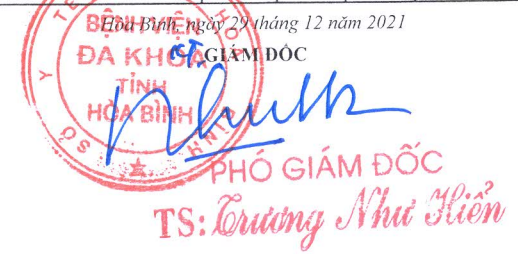 Hòa Bình, ngày 29 tháng 12 năm 2021
KT. GIÁM ĐỐC
SỞ Y TẾ TỈNH HÒA BÌNH
BỆNH VIỆN
ĐA KHOA
TỈNH
HÒA BÌNH
PHÓ GIÁM ĐỐC
TS: Trương Như Hiển